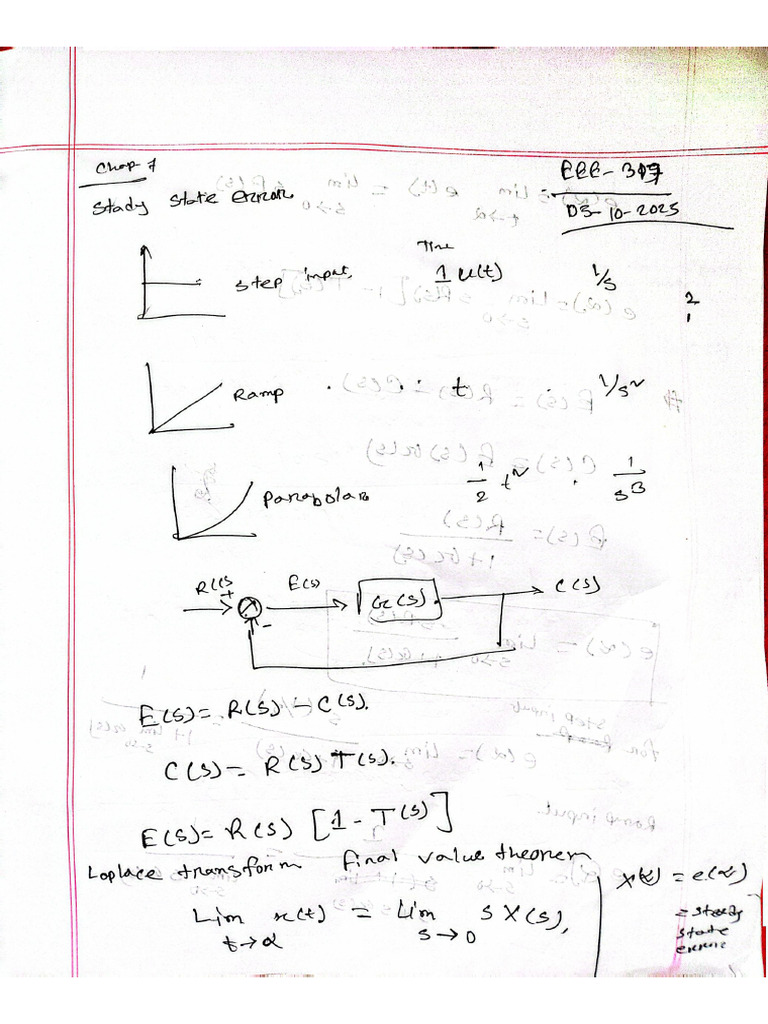 Chap 7
EEE-317
Stady State error
05-10-2025
Time
Step input, 1 u(t) 1/s
Ramp t 1/s²
Parabolar 1/2 t² 1/s³
R(s) + E(s) G(s) C(s)
-
E(s) = R(s) - C(s).
C(s) = R(s) T(s).
E(s) = R(s) [1 - T(s)]
Laplace transform final value theorem
Lim x(t) = Lim s X(s),
t→α s→0
x(α) = e(α)
= stady
state
error